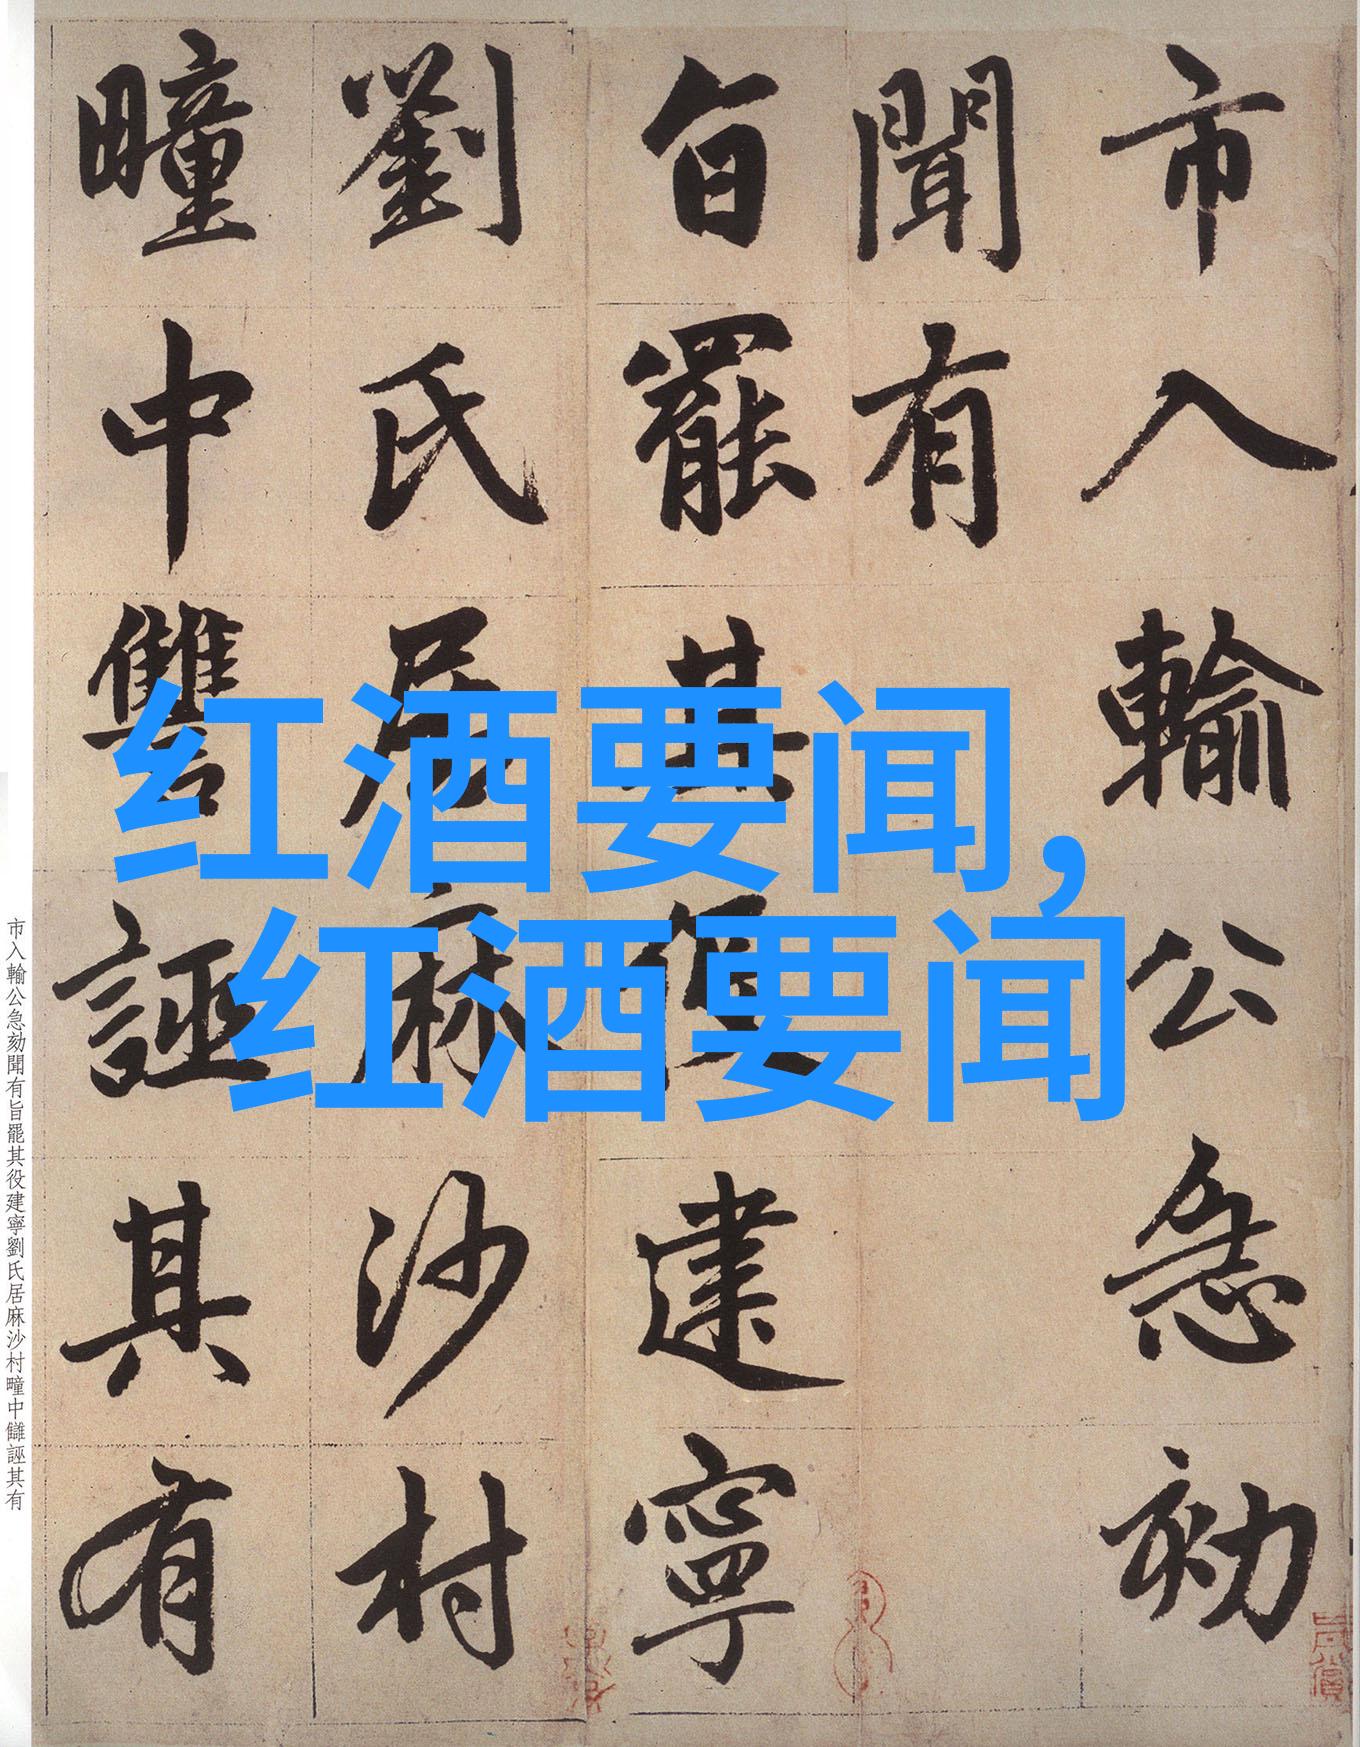 市入輸公急劾
聞有
旨罷其役建寧
劉氏居麻沙村
疃中讐誣其有
红酒要闻，
红酒要闻
市入輸公急劾聞有旨罷其役建寧劉氏居麻沙村疃中讎誣其有